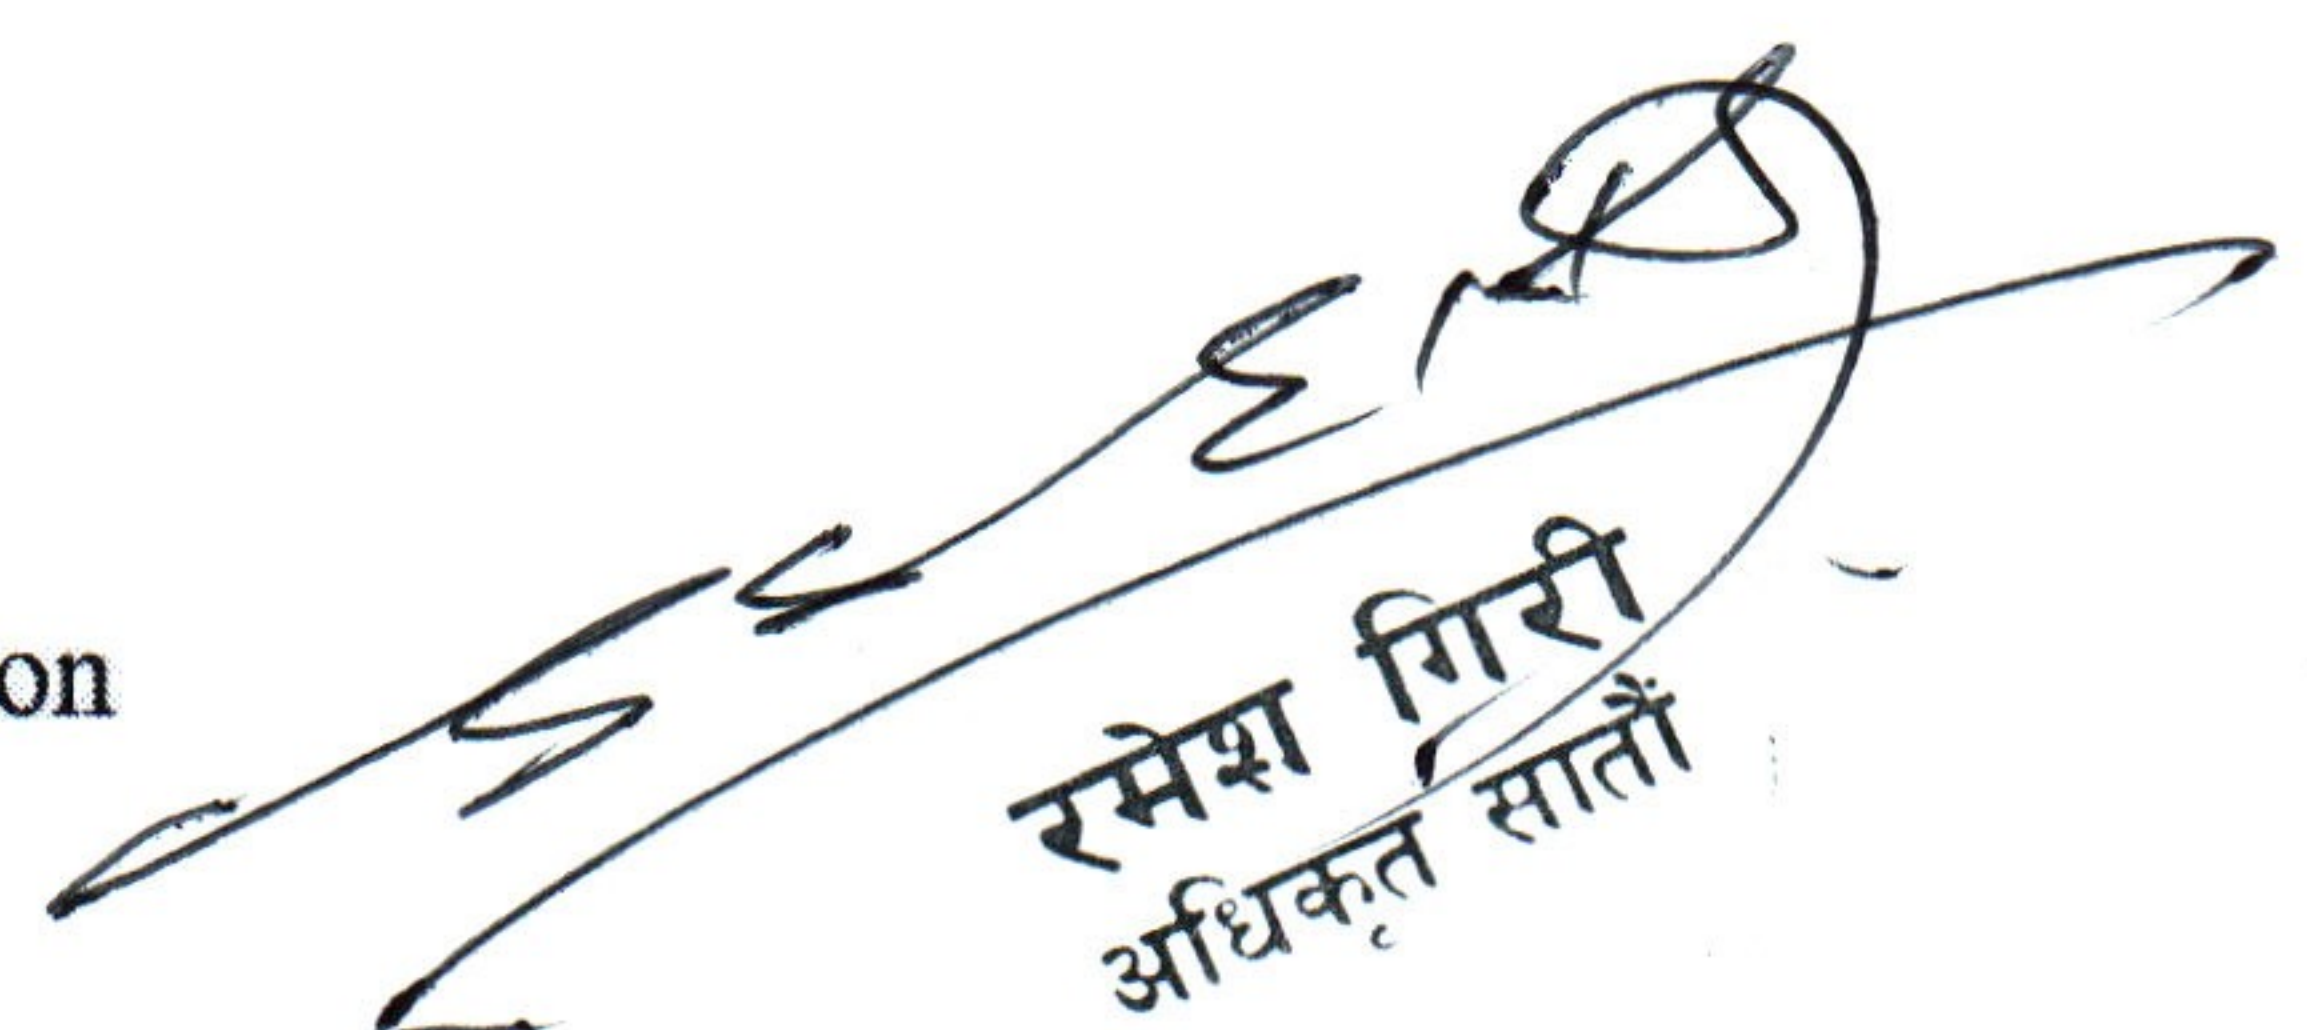 on
रमेश गिरी
अधिकृत सातौं